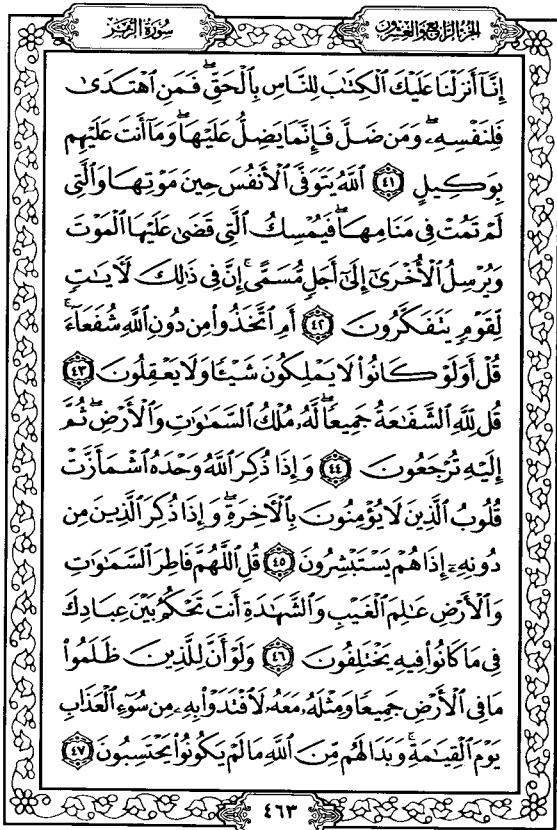 الجزء الرابع والعشرون
سورة الزمر
إِنَّآ أَنزَلْنَا عَلَيْكَ ٱلْكِتَٰبَ لِلنَّاسِ بِٱلْحَقِّ ۖ فَمَنِ ٱهْتَدَىٰ
فَلِنَفْسِهِۦ ۖ وَمَن ضَلَّ فَإِنَّمَا يَضِلُّ عَلَيْهَا ۖ وَمَآ أَنتَ عَلَيْهِم
بِوَكِيلٍ ﴿٤١﴾ ٱللَّهُ يَتَوَفَّى ٱلْأَنفُسَ حِينَ مَوْتِهَا وَٱلَّتِى
لَمْ تَمُتْ فِى مَنَامِهَا ۖ فَيُمْسِكُ ٱلَّتِى قَضَىٰ عَلَيْهَا ٱلْمَوْتَ
وَيُرْسِلُ ٱلْأُخْرَىٰٓ إِلَىٰٓ أَجَلٍ مُّسَمًّى ۚ إِنَّ فِى ذَٰلِكَ لَءَايَٰتٍ
لِّقَوْمٍ يَتَفَكَّرُونَ ﴿٤٢﴾ أَمِ ٱتَّخَذُوا۟ مِن دُونِ ٱللَّهِ شُفَعَآءَ ۚ
قُلْ أَوَلَوْ كَانُوا۟ لَا يَمْلِكُونَ شَيْـًٔا وَلَا يَعْقِلُونَ ﴿٤٣﴾
قُل لِّلَّهِ ٱلشَّفَٰعَةُ جَمِيعًا ۖ لَّهُۥ مُلْكُ ٱلسَّمَٰوَٰتِ وَٱلْأَرْضِ ۖ ثُمَّ
إِلَيْهِ تُرْجَعُونَ ﴿٤٤﴾ وَإِذَا ذُكِرَ ٱللَّهُ وَحْدَهُ ٱشْمَأَزَّتْ
قُلُوبُ ٱلَّذِينَ لَا يُؤْمِنُونَ بِٱلْءَاخِرَةِ ۖ وَإِذَا ذُكِرَ ٱلَّذِينَ مِن
دُونِهِۦٓ إِذَا هُمْ يَسْتَبْشِرُونَ ﴿٤٥﴾ قُلِ ٱللَّهُمَّ فَاطِرَ ٱلسَّمَٰوَٰتِ
وَٱلْأَرْضِ عَٰلِمَ ٱلْغَيْبِ وَٱلشَّهَٰدَةِ أَنتَ تَحْكُمُ بَيْنَ عِبَادِكَ
فِى مَا كَانُوا۟ فِيهِ يَخْتَلِفُونَ ﴿٤٦﴾ وَلَوْ أَنَّ لِلَّذِينَ ظَلَمُوا۟
مَا فِى ٱلْأَرْضِ جَمِيعًا وَمِثْلَهُۥ مَعَهُۥ لَٱفْتَدَوْا۟ بِهِۦ مِن سُوٓءِ ٱلْعَذَابِ
يَوْمَ ٱلْقِيَٰمَةِ ۚ وَبَدَا لَهُم مِّنَ ٱللَّهِ مَا لَمْ يَكُونُوا۟ يَحْتَسِبُونَ ﴿٤٧﴾
٤٦٣